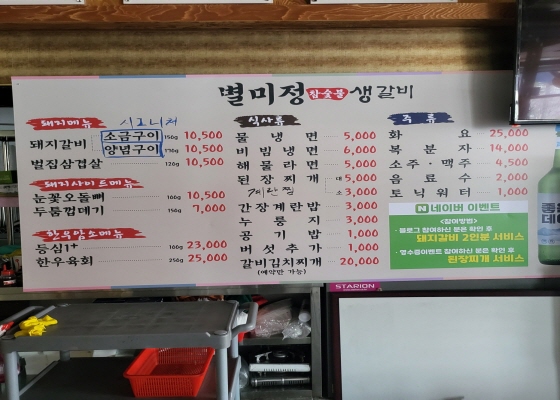 별미정 참숯불 생갈비
돼지메뉴 시그니처
돼지갈비
소금구이 150g 10,500
양념구이 150g 10,500
벌집삼겹살 120g 10,500
돼지사이드메뉴
눈꽃오돌뼈 160g 10,500
두툼껍데기 150g 7,000
한우암소메뉴
등심1+ 160g 23,000
한우육회 250g 25,000
식사류
물냉면 5,000
비빔냉면 6,000
해물라면 5,000
된장찌개 대 5,000
계란찜 소 3,000
간장계란밥 3,000
누룽지 3,000
공기밥 1,000
버섯추가 1,000
갈비김치찌개 20,000
(예약만 가능)
주류
화요 25,000
복분자 14,000
소주·맥주 4,500
음료수 2,000
토닉워터 1,000
N 네이버 이벤트
<참여방법>
· 블로그 참여하신 분은 확인 후
돼지갈비 2인분 서비스
· 영수증이벤트 참여하신 분은 확인 후
된장찌개 서비스
STARION